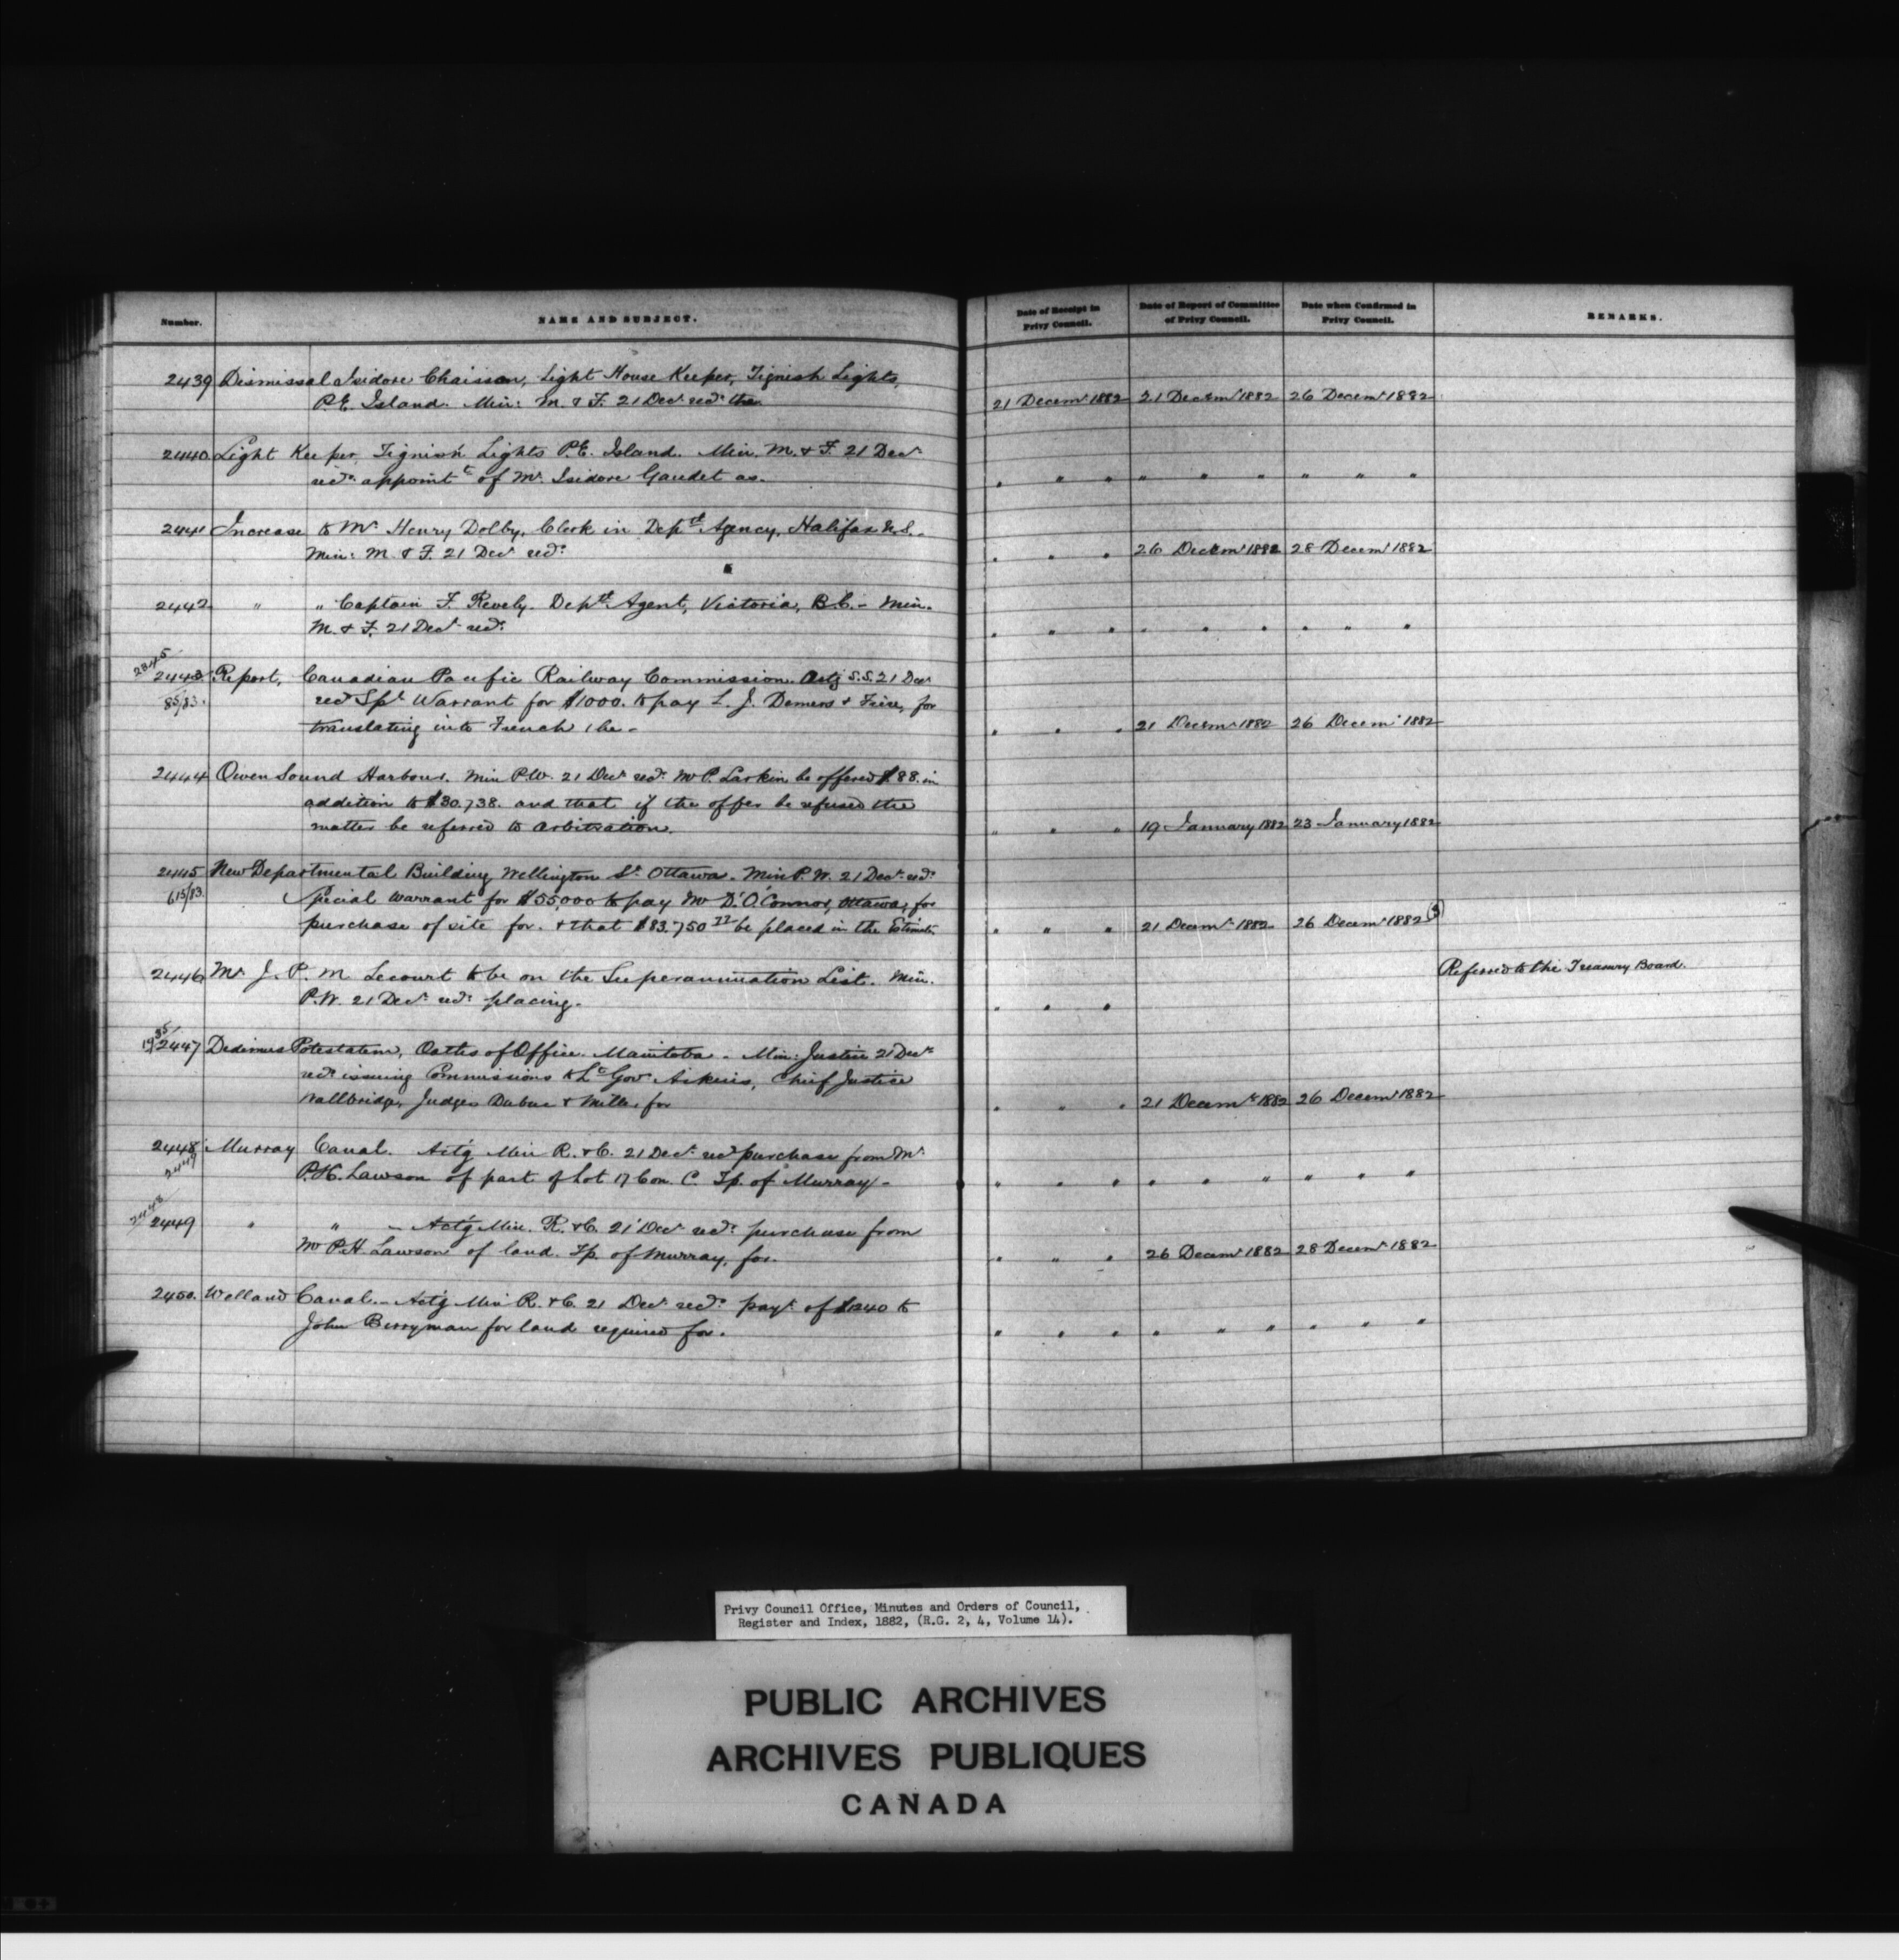 Number. NAME AND SUBJECT. Date of Receipt in Privy Council. Date of Report of Committee of Privy Council. Date when Confirmed in Privy Council. REMARKS.
2439 Dismissal Isidore Chaisson, Light House Keeper, Tignish Lights,
P.E. Island. Min: M. & F. 21 Decr recds the 21 Decemr 1882 21 Decemr 1882 26 Decemr 1882
2440 Light Keeper, Tignish Lights P.E. Island. Min. M. & F. 21 Decr
recds appointt of Mr. Isidore Gaudet as. " " " " " " " " "
2441 Increase to Mr Henry Dolby, Clerk in Deptl Agency, Halifax N.S.-
Min: M. & F. 21 Decr recds " " " 26 Decemr 1882 28 Decemr 1882
2442 " " Captain F. Revely. Deptl Agent, Victoria, B.C. - Min.
M. & F. 21 Decr recds " " " " " " " " "
2845
2443 Report, Canadian Pacific Railway Commission. Actg S.S. 21 Decr
85/83. recds Spl Warrant for $1000. to pay L. J. Demers & Frère, for
translating into French the - " " " 21 Decemr 1882 26 Decemr 1882
2444 Owen Sound Harbour. Min P.W. 21 Decr recds Mr P. Larkin be offered $88. in
addition to $30,738. and that if the offer be refused the
matter be referred to arbitration. " " " 19 January 1882 23 January 1882
2445 New Departmental Building Wellington St. Ottawa. Min P.W. 21 Decr recds
615/83 Special Warrant for $55,000 to pay Mr D. O'Connor, Ottawa, for
purchase of site for. & that $83,750 be placed in the Estimates " " " 21 Decemr 1882 26 Decemr 1882
2446 Mr. J. P. M. Lecourt to be on the Superannuation List. Min. Referred to the Treasury Board.
P.W. 21 Decr recds placing. " " "
2447 Dedimus Potestatem, Oaths of Office. Manitoba. - Min: Justice 21 Decr
recds issuing Commissions to Lt Gov Aikins, Chief Justice
Wallbridge, Judges Dubuc & Miller for " " " 21 Decemr 1882 26 Decemr 1882
2448 Murray Canal. Act'g Min R. & C. 21 Decr recds purchase from Mr.
2449 P.H. Lawson of part of Lot 17 Con. C. Tp. of Murray - " " " " " " " " "
2448
2449 " " - Act'g Min. R. & C. 21 Decr recds purchase from
Mr P.H. Lawson of land. Tp. of Murray, for. " " " 26 Decemr 1882 28 Decemr 1882
2450. Welland Canal. - Act'g Min R. & C. 21 Decr recds payt of $1240 to
John Berryman for land required for. " " " " " " " " "
Privy Council Office, Minutes and Orders of Council,
Register and Index, 1882, (R.G. 2, 4, Volume 14).
PUBLIC ARCHIVES
ARCHIVES PUBLIQUES
CANADA